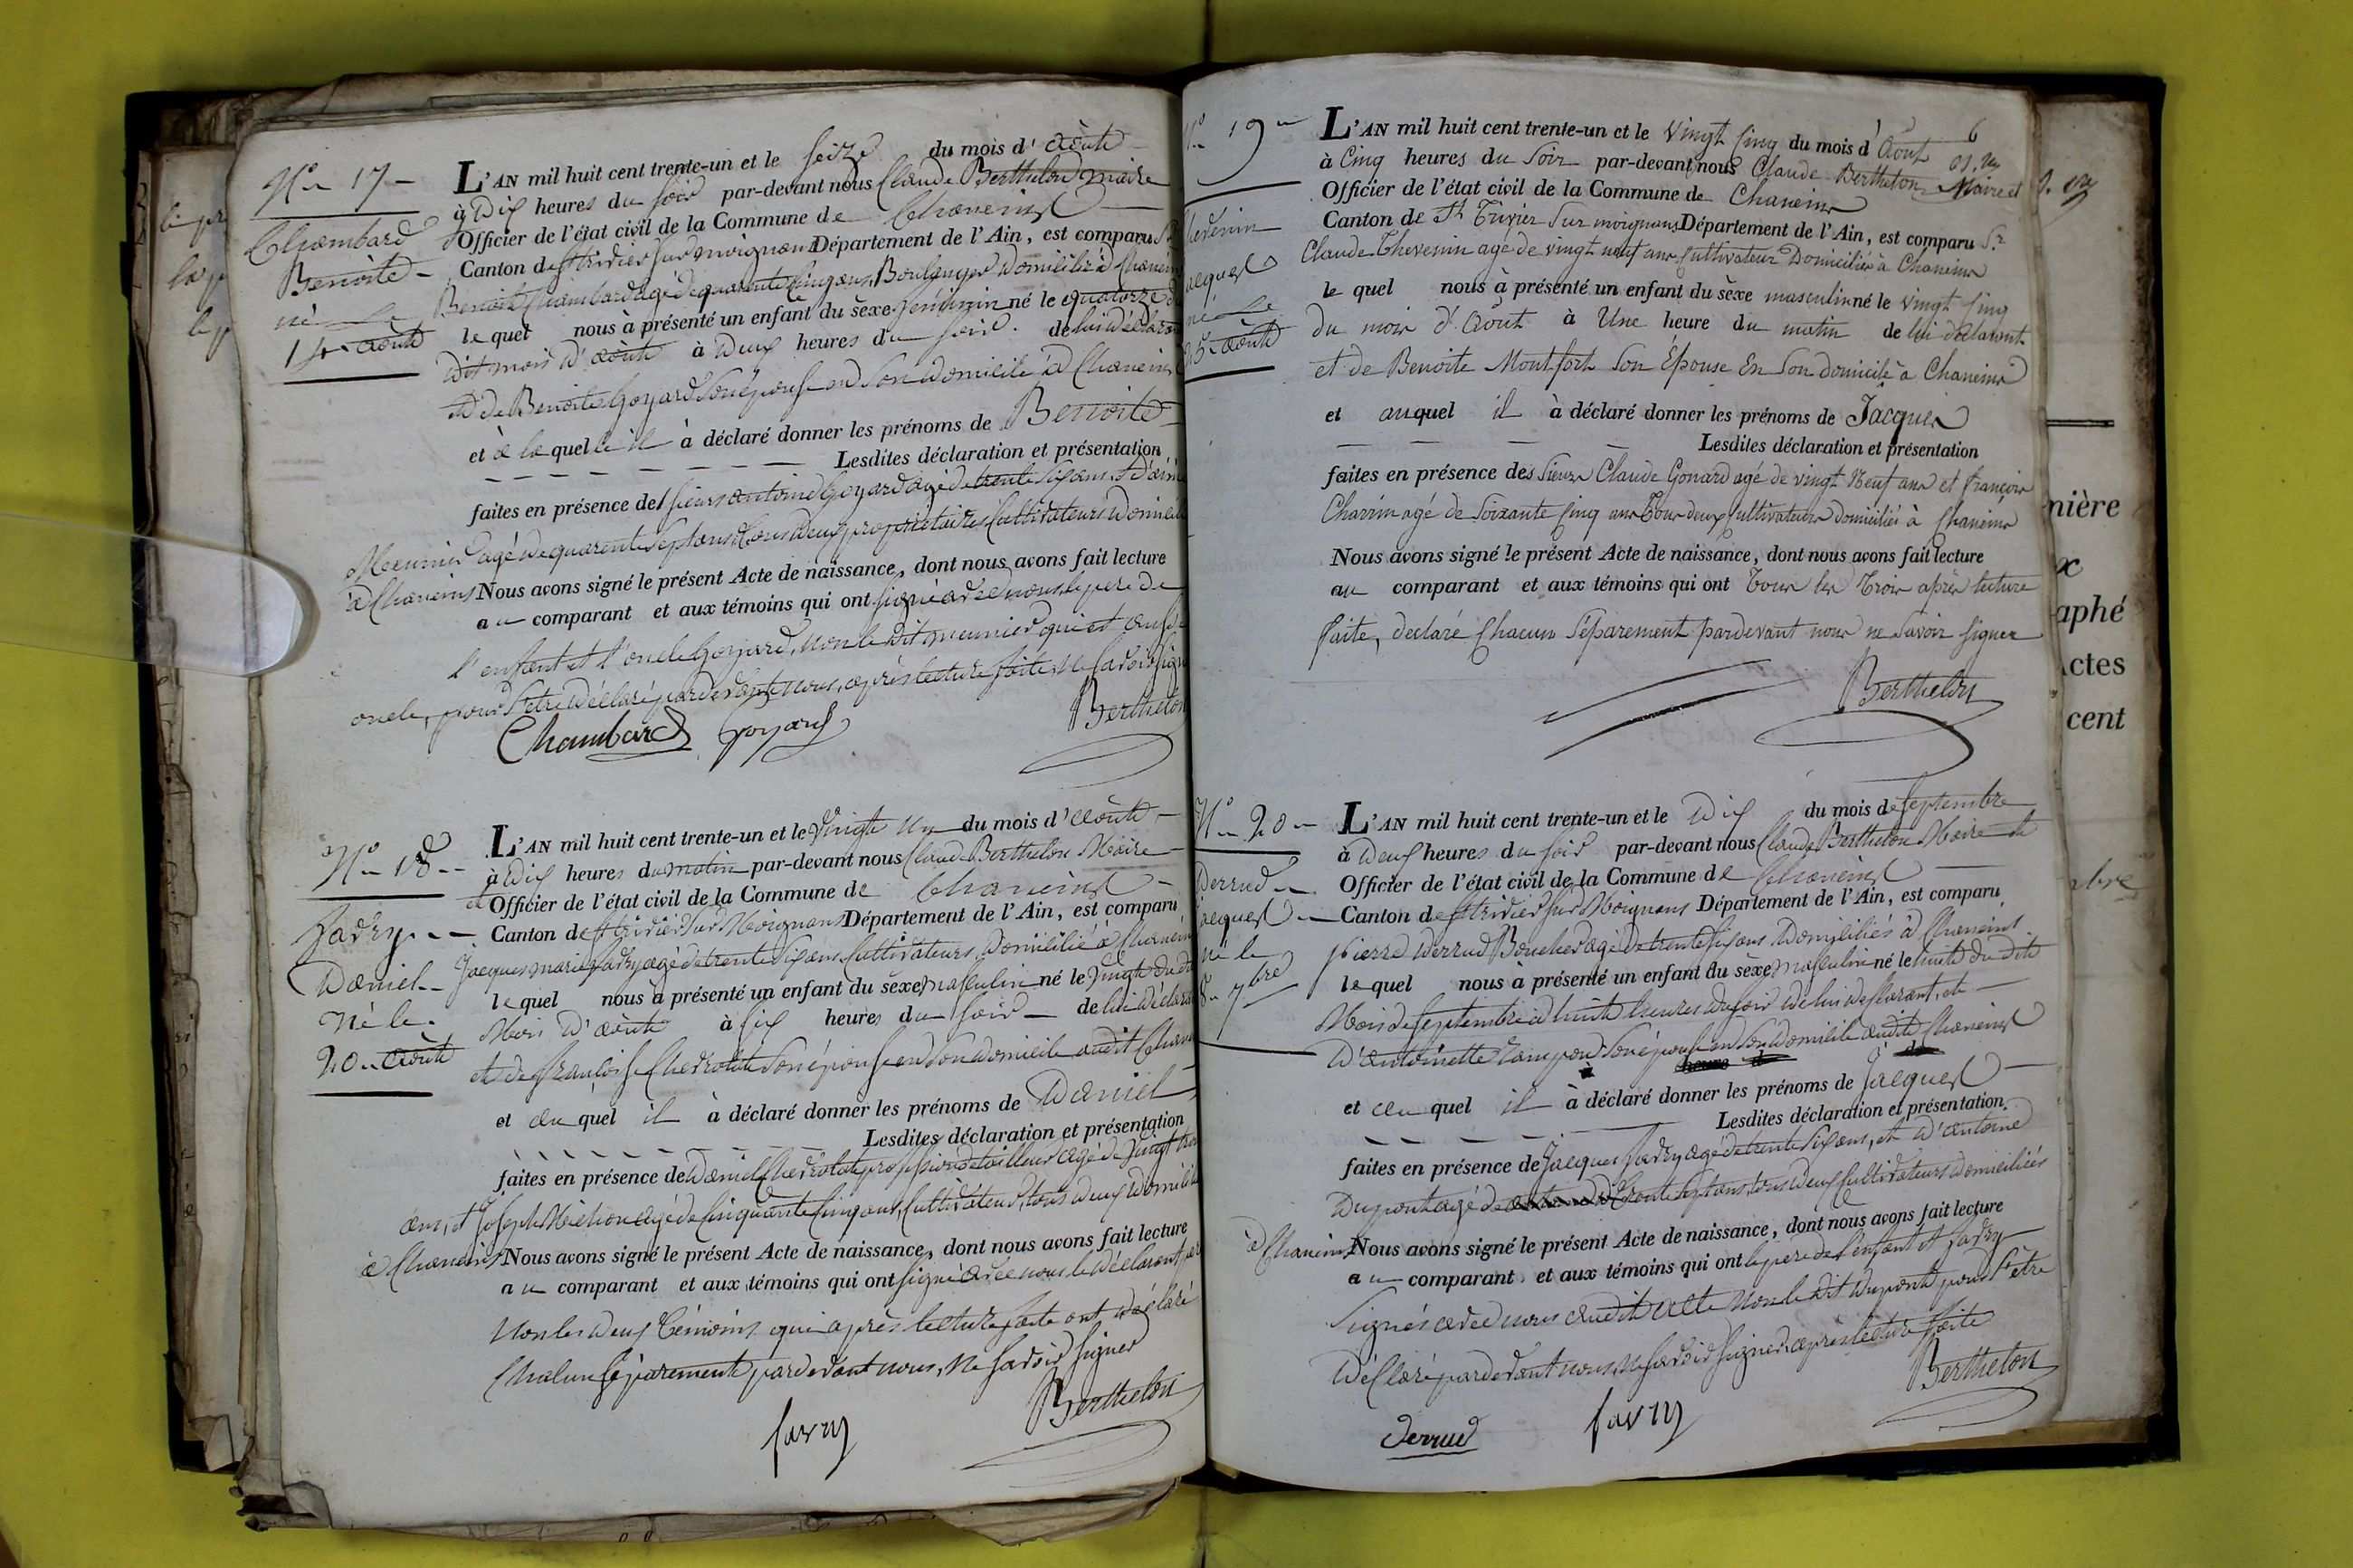 N.° 17
Chambard
Benoite
né le
14. août
L'AN mil huit cent trente-un et le seize du mois d'août
à dix heures du soir par-devant nous Claude Berthelon maire
Officier de l'état civil de la Commune de Chaneins
Canton de St trivier sur moignans Département de l'Ain, est comparu
Benoit Chambard agé de quarante cinq ans, Boulanger domicilié à Chaneins
le quel nous à présenté un enfant du sèxe feminin né le quatorze
dit mois d'août à deux heures du soir. de lui déclarant
et de Benoite Goyard son épouse en son domicile à Chaneins
et à la quelle il à déclaré donner les prénoms de Benoite
Lesdites déclaration et présentation
faites en présence des sieurs antoine Goyard agé de trente six ans,
Meunier agé de quarente sept ans, tous deux propriétaires Cultivateurs domiciliés
à Chaneins Nous avons signé le présent Acte de naissance, dont nous avons fait lecture
au comparant et aux témoins qui ont signé avec nous le pere de
l'enfant et l'oncle Goyard, non le dit meunier qui est aussi
oncle, pour l'être déclaré pardevant nous, après lecture faite, ne savoir signer
Chambard Goyard Berthelon
N.° 18
favry
Daniel
Né le
20 août
L'AN mil huit cent trente-un et le vingt un du mois d'août
à dix heures du matin par-devant nous Claude Berthelon Maire
et Officier de l'état civil de la Commune de Chaneins
Canton de St trivier sur Moignans Département de l'Ain, est comparu
Jacques marie favry agé de trente six ans Cultivateurs, domicilié à Chaneins
le quel nous à présenté un enfant du sèxe masculin né le vingt du dit
Mois d'août à six heures du soir de lui déclarant
et de françoise Chevrolat son épouse en son domicile audit Chaneins
et au quel il à déclaré donner les prénoms de Daniel
Lesdites déclaration et présentation
faites en présence de Daniel Chevrolat profession de tailleur agé de vingt
ans, et Joseph Michon agé de Cinquante Cinq ans, Cultivateur, tous deux domiciliés
à Chaneins Nous avons signé le présent Acte de naissance, dont nous avons fait lecture
au comparant et aux témoins qui ont signé avec nous le déclarant,
Non les deux témoins qui après lecture faite ont déclaré
Chacun séparement pardevant nous, ne savoir signer
favry Berthelon
N.° 19
Thévenin
Jacques
né le
25. août
6
L'AN mil huit cent trente-un et le vingt Cinq du mois d'Août
à Cinq heures du Soir par-devant nous Claude Berthelon Maire et
Officier de l'état civil de la Commune de Chaneins
Canton de St Trivier Sur moignans Département de l'Ain, est comparu Sr
Claude Thevenin agé de vingt neuf ans Cultivateur Domicilié à Chaneins
le quel nous à présenté un enfant du sèxe masculin né le vingt Cinq
du mois d'Août à Une heure du matin de lui déclarant
et de Benoite Montfort Son Épouse En Son domicile à Chaneins
et auquel il à déclaré donner les prénoms de Jacques
Lesdites déclaration et présentation
faites en présence des Sieurs Claude Gonard agé de vingt Neuf ans et françois
Charrin agé de Soixante Cinq ans Tous deux Cultivateurs domiciliés à Chaneins
Nous avons signé le présent Acte de naissance, dont nous avons fait lecture
au comparant et aux témoins qui ont Tous les Trois après lecture
faite, declaré Chacun Séparement pardevant nous ne Savoir Signer
Berthelon
N.° 20
Derrud
Jacques
né le
8. 7bre
L'AN mil huit cent trente-un et le dix du mois de septembre
à deux heures du soir par-devant nous Claude Berthelon Maire et
Officier de l'état civil de la Commune de Chaneins
Canton de St trivier sur Moignans Département de l'Ain, est comparu
Pierre Derrud Boucher agé de trente six ans Domiciliés à Chaneins
le quel nous à présenté un enfant du sèxe masculin né le huit du dit
Mois de septembre à huit heures du soir de lui déclarant, et
d'antoinette son épouse en son domicile audit Chaneins
et au quel il à déclaré donner les prénoms de Jacques
Lesdites déclaration et présentation
faites en présence de Jacques favry agé de trente six ans, et d'antoine
Dupont agé de trente sept ans, tous deux Cultivateurs domiciliés
à Chaneins Nous avons signé le présent Acte de naissance, dont nous avons fait lecture
au comparant et aux témoins qui ont le pere de l'enfant et favry
signés avec nous audit acte non le dit Dupont pour l'être
déclaré pardevant nous, ne savoir signer après lecture faite
Derrud favry Berthelon
nière
aphé
Actes
cent